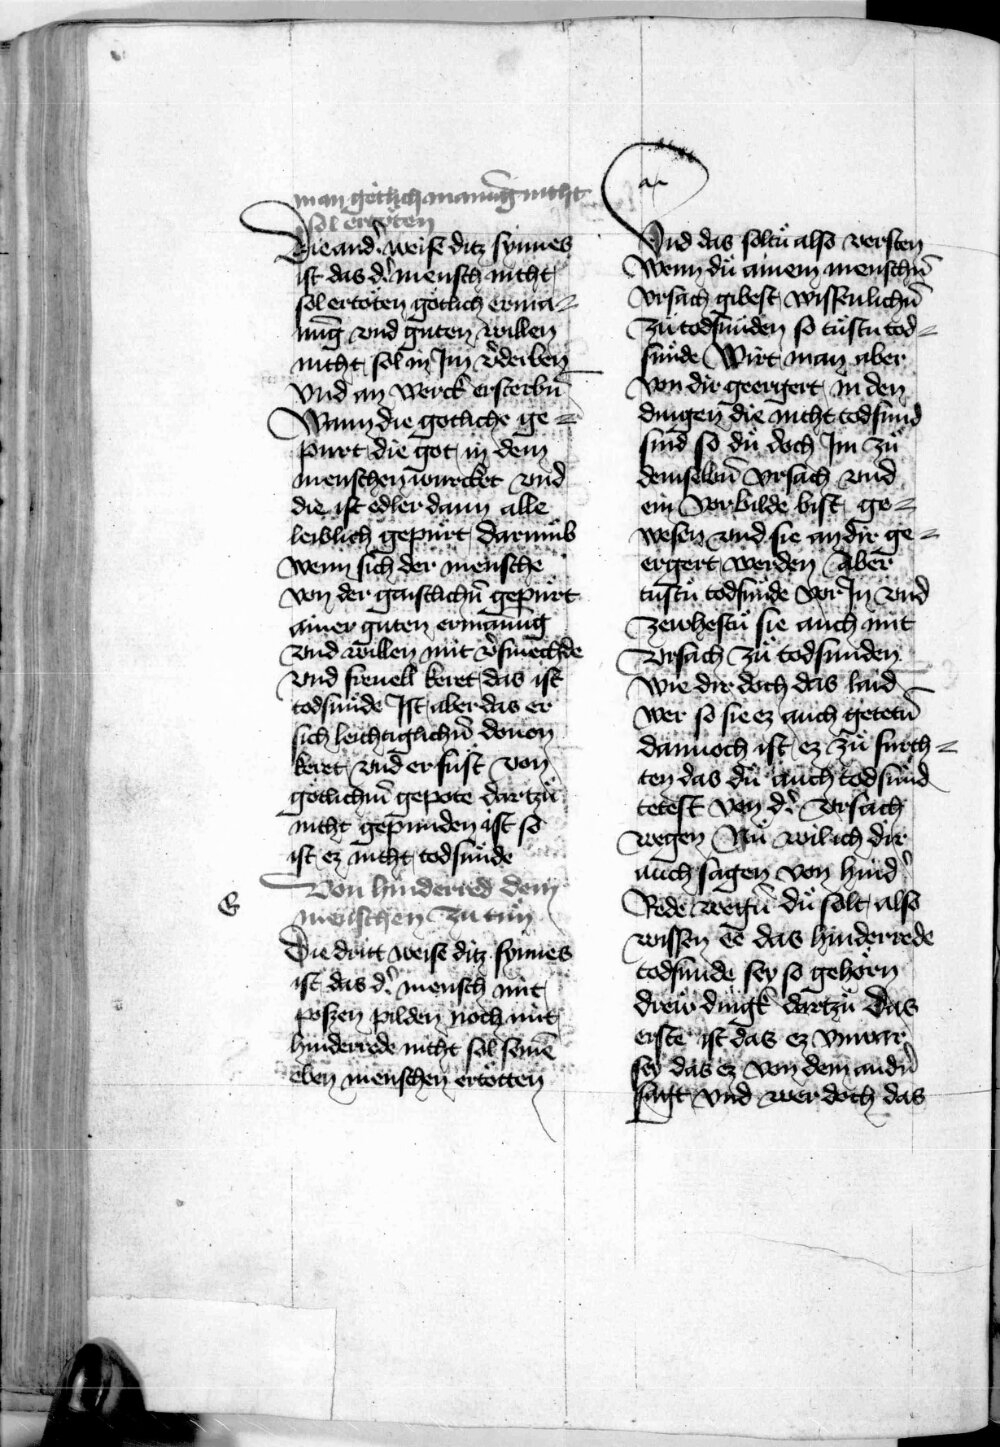 man götlich manu̅g nicht
sol ertöten
Die and'. weise ditz synnes
ist das d'. mensch nicht
sol ertöten götlich erma⸗
nu̅g vnd guten willen
nicht sol in Im v'derben
vnd an werck ersterbn̄
Wann die gotliche ge⸗
purt die got in dem
menschen wurcket vnd
die ist edler dann alle
leiblich gepurt darumb
wenn sich der mensche
von der gaistlichn̄ gepürt
ainer guten ermanu̅g
vnd willen mit v'smechde
vnd freuell keret das ist
todsünde Ist aber das er
sich leichtiglichn̄ douon
keret vnd er sust von
götlichm̄ gepote dartzu
nicht gepunden ist so
ist ez nicht todsünde
Von hinderred dem
menschen zu tun
Die dritt weise ditz synnes
ist das d'. mensch mit
poszen pilden noch mit
hinderrede nicht sol seinē
eben menschen ertötten
Vnd das soltu also versten
Wenn dü ainem menschn̄
vrsach gibest wissenlichn̄
zu todsünden so tüstu tod⸗
sünde Wirt man aber
von dir geergert in den
dingen die nicht todsünd
sind so dü doch Im zü
demselbn̄ vrsach vnd
ein vorbilde bist ge⸗
wesen vnd sie an dir ge⸗
ergert werden Aber
tustu todsünde vor In vnd
zewhestu sie auch mit
vrsach zü todsünden
wie dir doch das laid
wer so sie ez auch getetn̄
dannoch ist ez zü furch⸗
ten das dü auch todsünd
tetest von d'. vrsach
wegen Nü wil ich dir
auch sagen von hind'
Rede wegn̄ dü solt also
wissen ee das hinderrede
todsünde sey so gehörn
drew dingk dartzü Das
erste ist das ez vnwar
sey das ez von dem andn̄
sagt vnd wer doch das